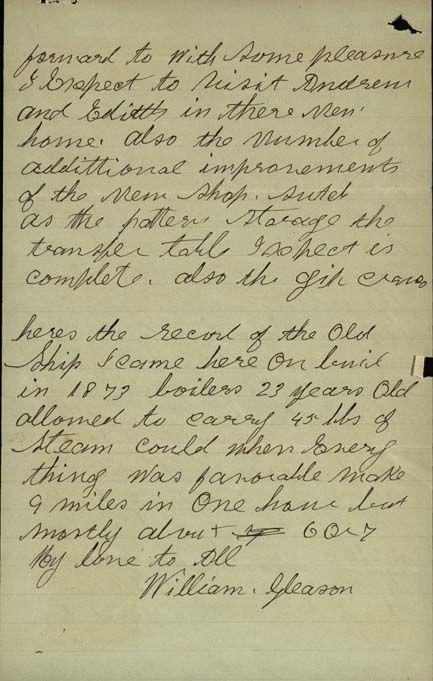 forward to with some pleasure
I Expect to visit Andrew
and Edith in there New
home. also the Number of
addittional improvements
of the New Shop. sutch
as the pattern storage the
transfer table I expect is
complete. also the gib cranes
heres the record of the Old
Ship I came here On built
in 1873 boilers 23 years Old
allowed to carry 45 lbs of
Steam could when Every
thing was favorable make
9 miles in One hour but
mostly about 6 or 7
My love to All
William. Gleason